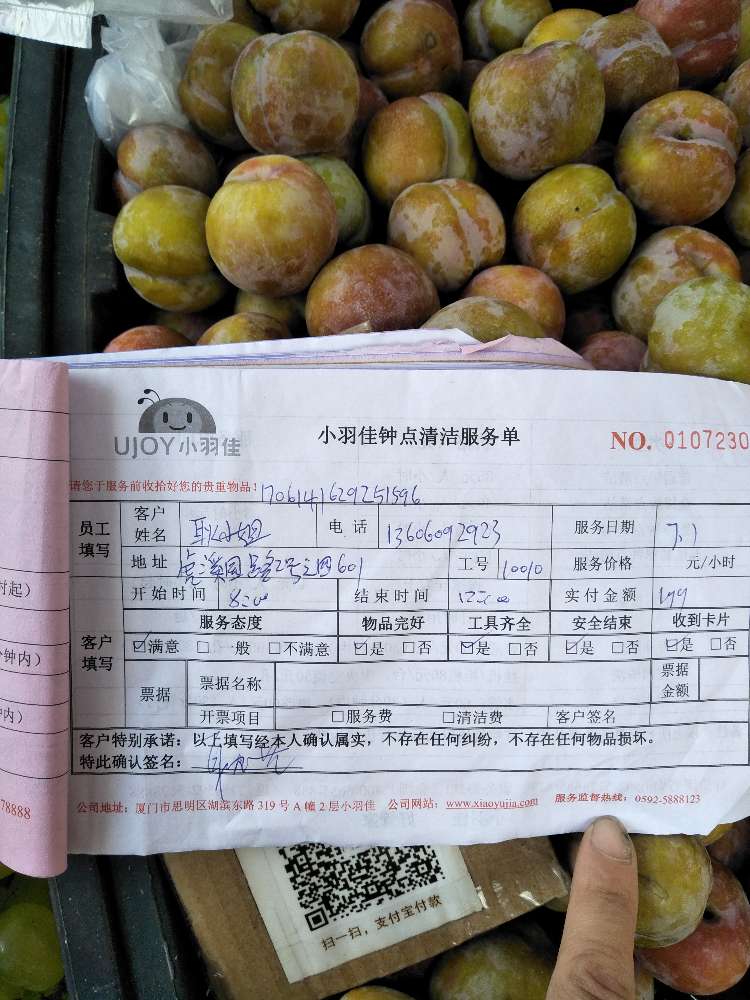 UJOY小羽佳
小羽佳钟点清洁服务单
NO. 0107230
请您于服务前收拾好您的贵重物品!
1706141629251596
员工填写 客户姓名 耿小姐 电话 13606092923 服务日期 7.1
地址 2号之四601 工号 10010 服务价格 元/小时
开始时间 8:00 结束时间 12:00 实付金额 199
客户填写 服务态度 物品完好 工具齐全 安全结束 收到卡片
☑满意 □一般 □不满意 ☑是 □否 ☑是 □否 ☑是 □否 ☑是 □否
票据 票据名称 票据金额
开票项目 □服务费 □清洁费 客户签名
客户特别承诺：以上填写经本人确认属实，不存在任何纠纷，不存在任何物品损坏。
特此确认签名：
公司地址：厦门市思明区湖滨东路 319 号 A 幢 2 层小羽佳 公司网站：www.xiaoyujia.com 服务监督热线：0592-5888123
时起）
分钟内）
内）
78888
扫一扫，支付宝付款